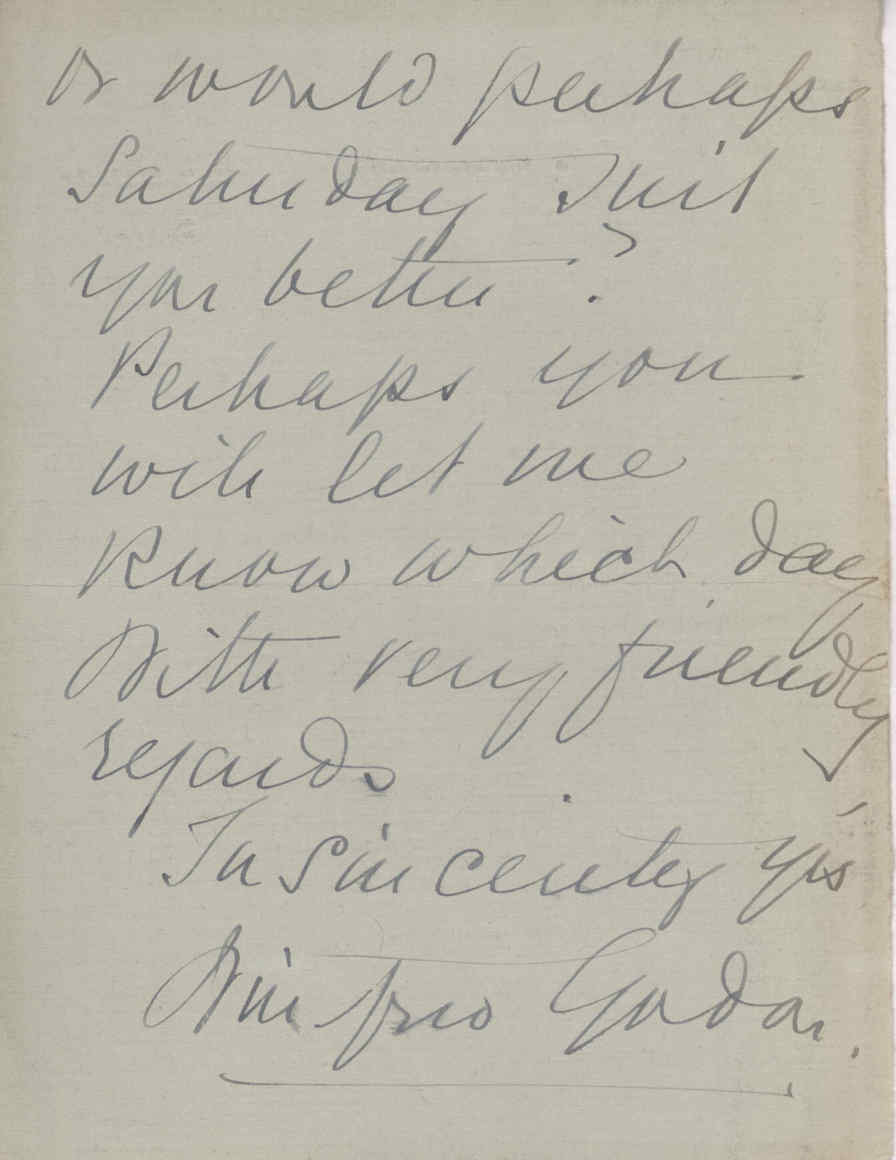 or would perhaps
Saturday suit
you better ?
Perhaps you
will let me
know which day
With very friendly
regards
In sincerity y'rs